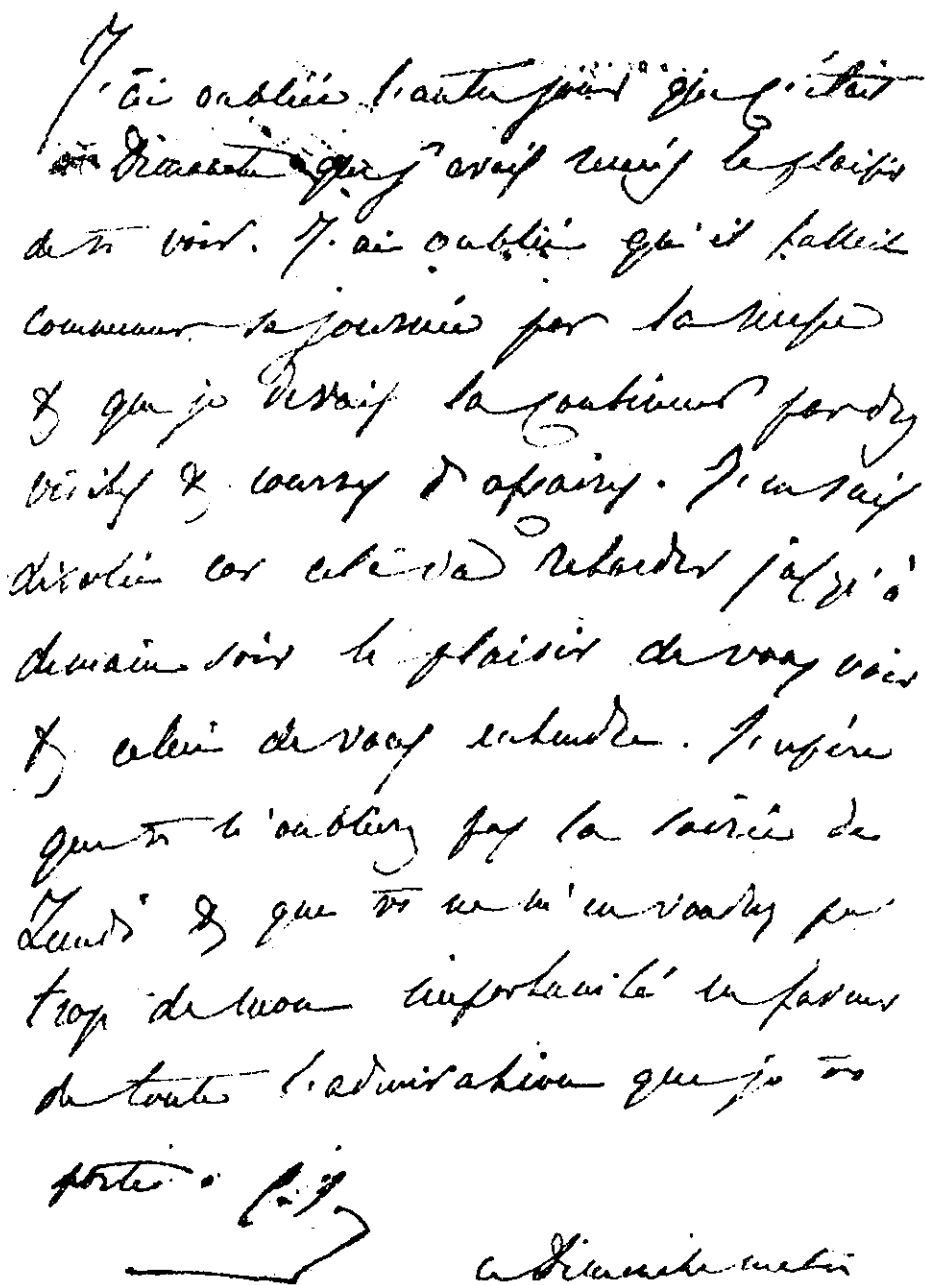 J'ai oubliée l'autre jour que c'était
Dimanche que j'avais remis le plaisir
de vs voir. J'ai oublié qu'il fallait
commencer la journée par la messe
& que je devais la continuer par des
visites & courses d'affaires. J'en suis
désolée car cela va retarder jusqu'à
demain soir le plaisir de vous voir
& celui de vous entendre. J'espère
que vs n'oublierez pas la soirée de
Lundi & que vs ne m'en voudrez pas
trop de mon importunité en faveur
de toute l'admiration que je vs
porte.
ce Dimanche matin